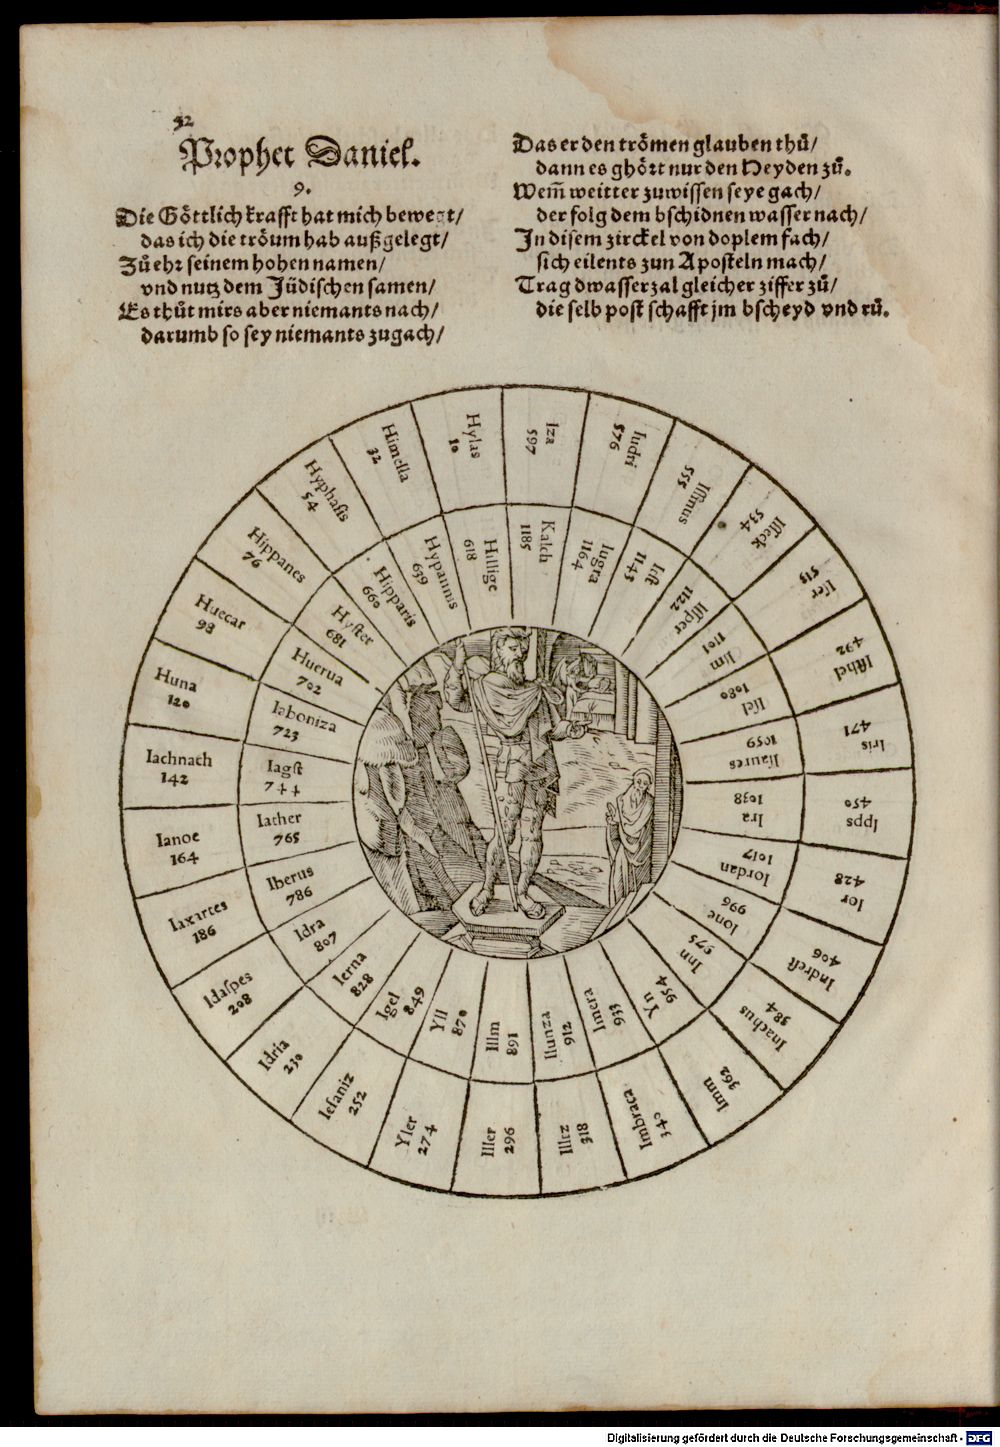 92
Prophet Daniel.
9.
Die Göttlich krafft hat mich bewegt/
das ich die tröum hab außgelegt/
Zů ehr seinem hohen namen/
vnd nutz dem Jüdischen samen/
Es thůt mirs aber niemants nach/
darumb so sey niemants zugach/
Das er den trömen glauben thů/
dann es ghört nur den Heyden zů.
Wem̃ weitter zuwissen seye gach/
der folg dem bschidnen wasser nach/
In disem zirckel von doplem fach/
sich eilents zun Aposteln mach/
Trag dwasserzal gleicher ziffer zů/
die selb post schafft jm bscheyd vnd rů.
Hylas
10
Iza
597
Iudri
576
Issinus
555
Isseck
534
Iser
513
Isthel
492
Iris
471
Ipps
450
Ior
428
Indrest
406
Inachus
384
Imm
362
Imbraca
340
Illrz
318
Iller
296
Yler
274
Iesaniz
252
Idria
230
Idaspes
208
Iaxartes
186
Ianoe
164
Iachnach
142
Huna
120
Huecar
98
Hippanes
76
Hyphasis
54
Himella
32
Hillige
618
Kalch
1185
Iugra
1164
Ist
1143
Isper
1122
Ism
1101
Isel
1080
Isaures
1059
Ira
1038
Iordan
1017
Ione
996
Inn
975
Yn
954
Imera
933
Ilunza
912
Illm
891
Yll
870
Igel
849
Ierna
828
Idra
807
Iberus
786
Iather
765
Iagst
744
Iaboniza
723
Huerua
702
Hyster
681
Hipparis
660
Hypannis
639
Digitalisierung gefördert durch die Deutsche Forschungsgemeinschaft - DFG